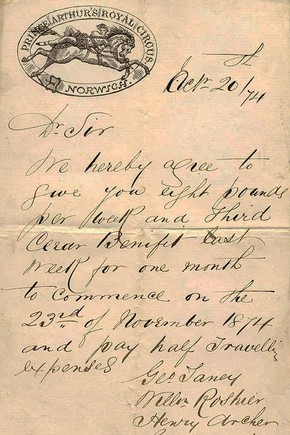 PRINCE ARTHUR'S ROYAL CIRCUS,
NORWICH.
Octr 20/74
Dr Sir
We hereby agree to
give you eight pounds
per week and Third
Cear Benifit last
week for one month
to commence on the
23rd of November 1874
and pay half Travelling
expenses
Geo Taney
Roshier
Henry Archer